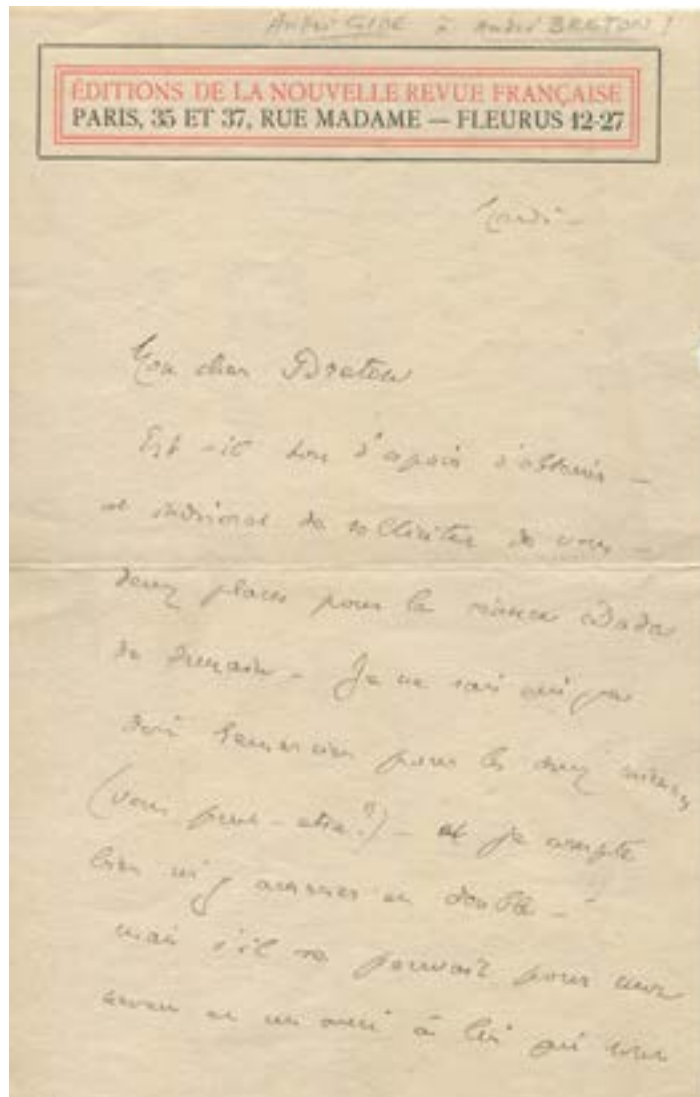 André GIDE à André BRETON !
ÉDITIONS DE LA NOUVELLE REVUE FRANÇAISE
PARIS, 35 ET 37, RUE MADAME — FLEURUS 12-27
Mardi —
Mon cher Breton
Est-il d'espoir d'obtenir —
et de solliciter de vous —
deux places pour la séance Dada
de demain — Je ne sais qui je
dois remercier pour les deux
(vous peut-être ?) — et je compte
bien m'y amener en double —
mais s'il se pouvait pour une
et un ami à lui qui